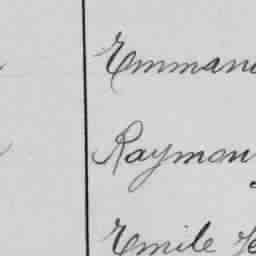 Emman
Raymon
Emile